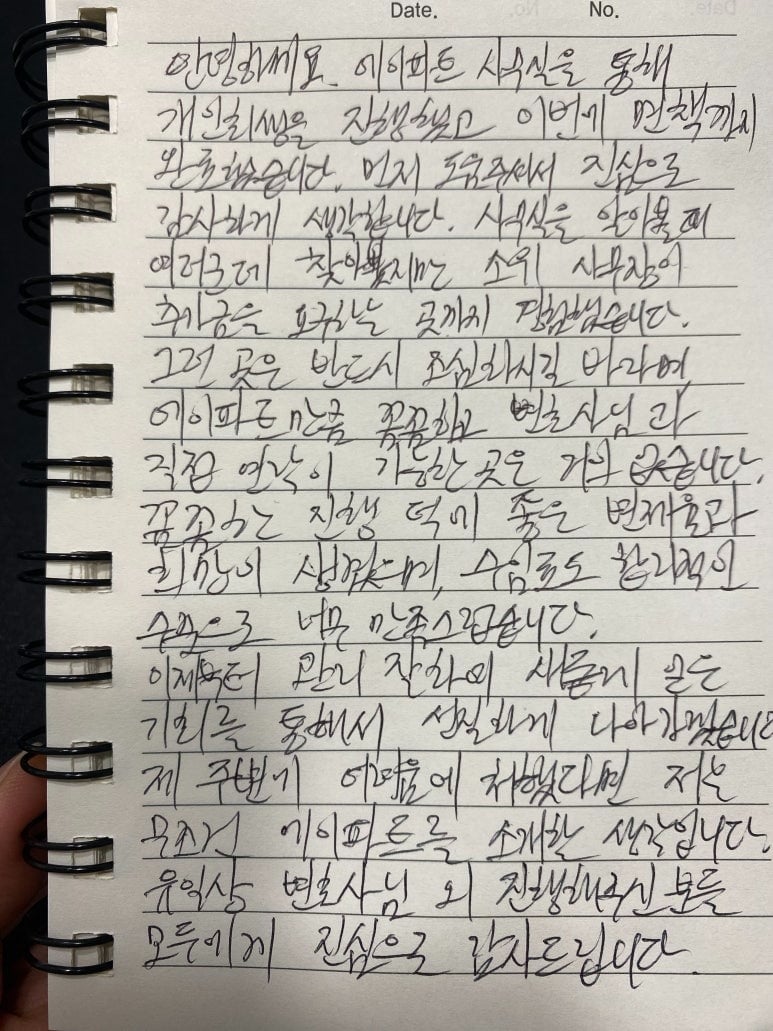 Date. No.
안녕하세요. 에이파트 사무실을 통해
개인회생을 진행했고 이번에 면책까지
완료했습니다. 먼저 도움주셔서 진심으로
감사하게 생각합니다. 사무실을 알아볼때
여러군데 찾아봤지만 소위 사무장이
추가금을 요구하는 곳까지 경험했습니다.
그런 곳은 반드시 조심하시길 바라며,
에이파트만큼 꼼꼼하고 변호사님과
직접 연락이 가능한 곳은 거의 없습니다.
꼼꼼하는 진행 덕에 좋은 변제율과
희망이 생겼으며, 수임료도 합리적인
수준으로 너무 만족스럽습니다.
이제부터 관리 잘하여 새롭게 얻은
기회를 통해서 성실하게 나아가겠습니다
제 주변에 어려움에 처했다면 저는
무조건 에이파트를 소개할 생각입니다.
유익상 변호사님 외 진행해주신 분들
모두에게 진심으로 감사드립니다.